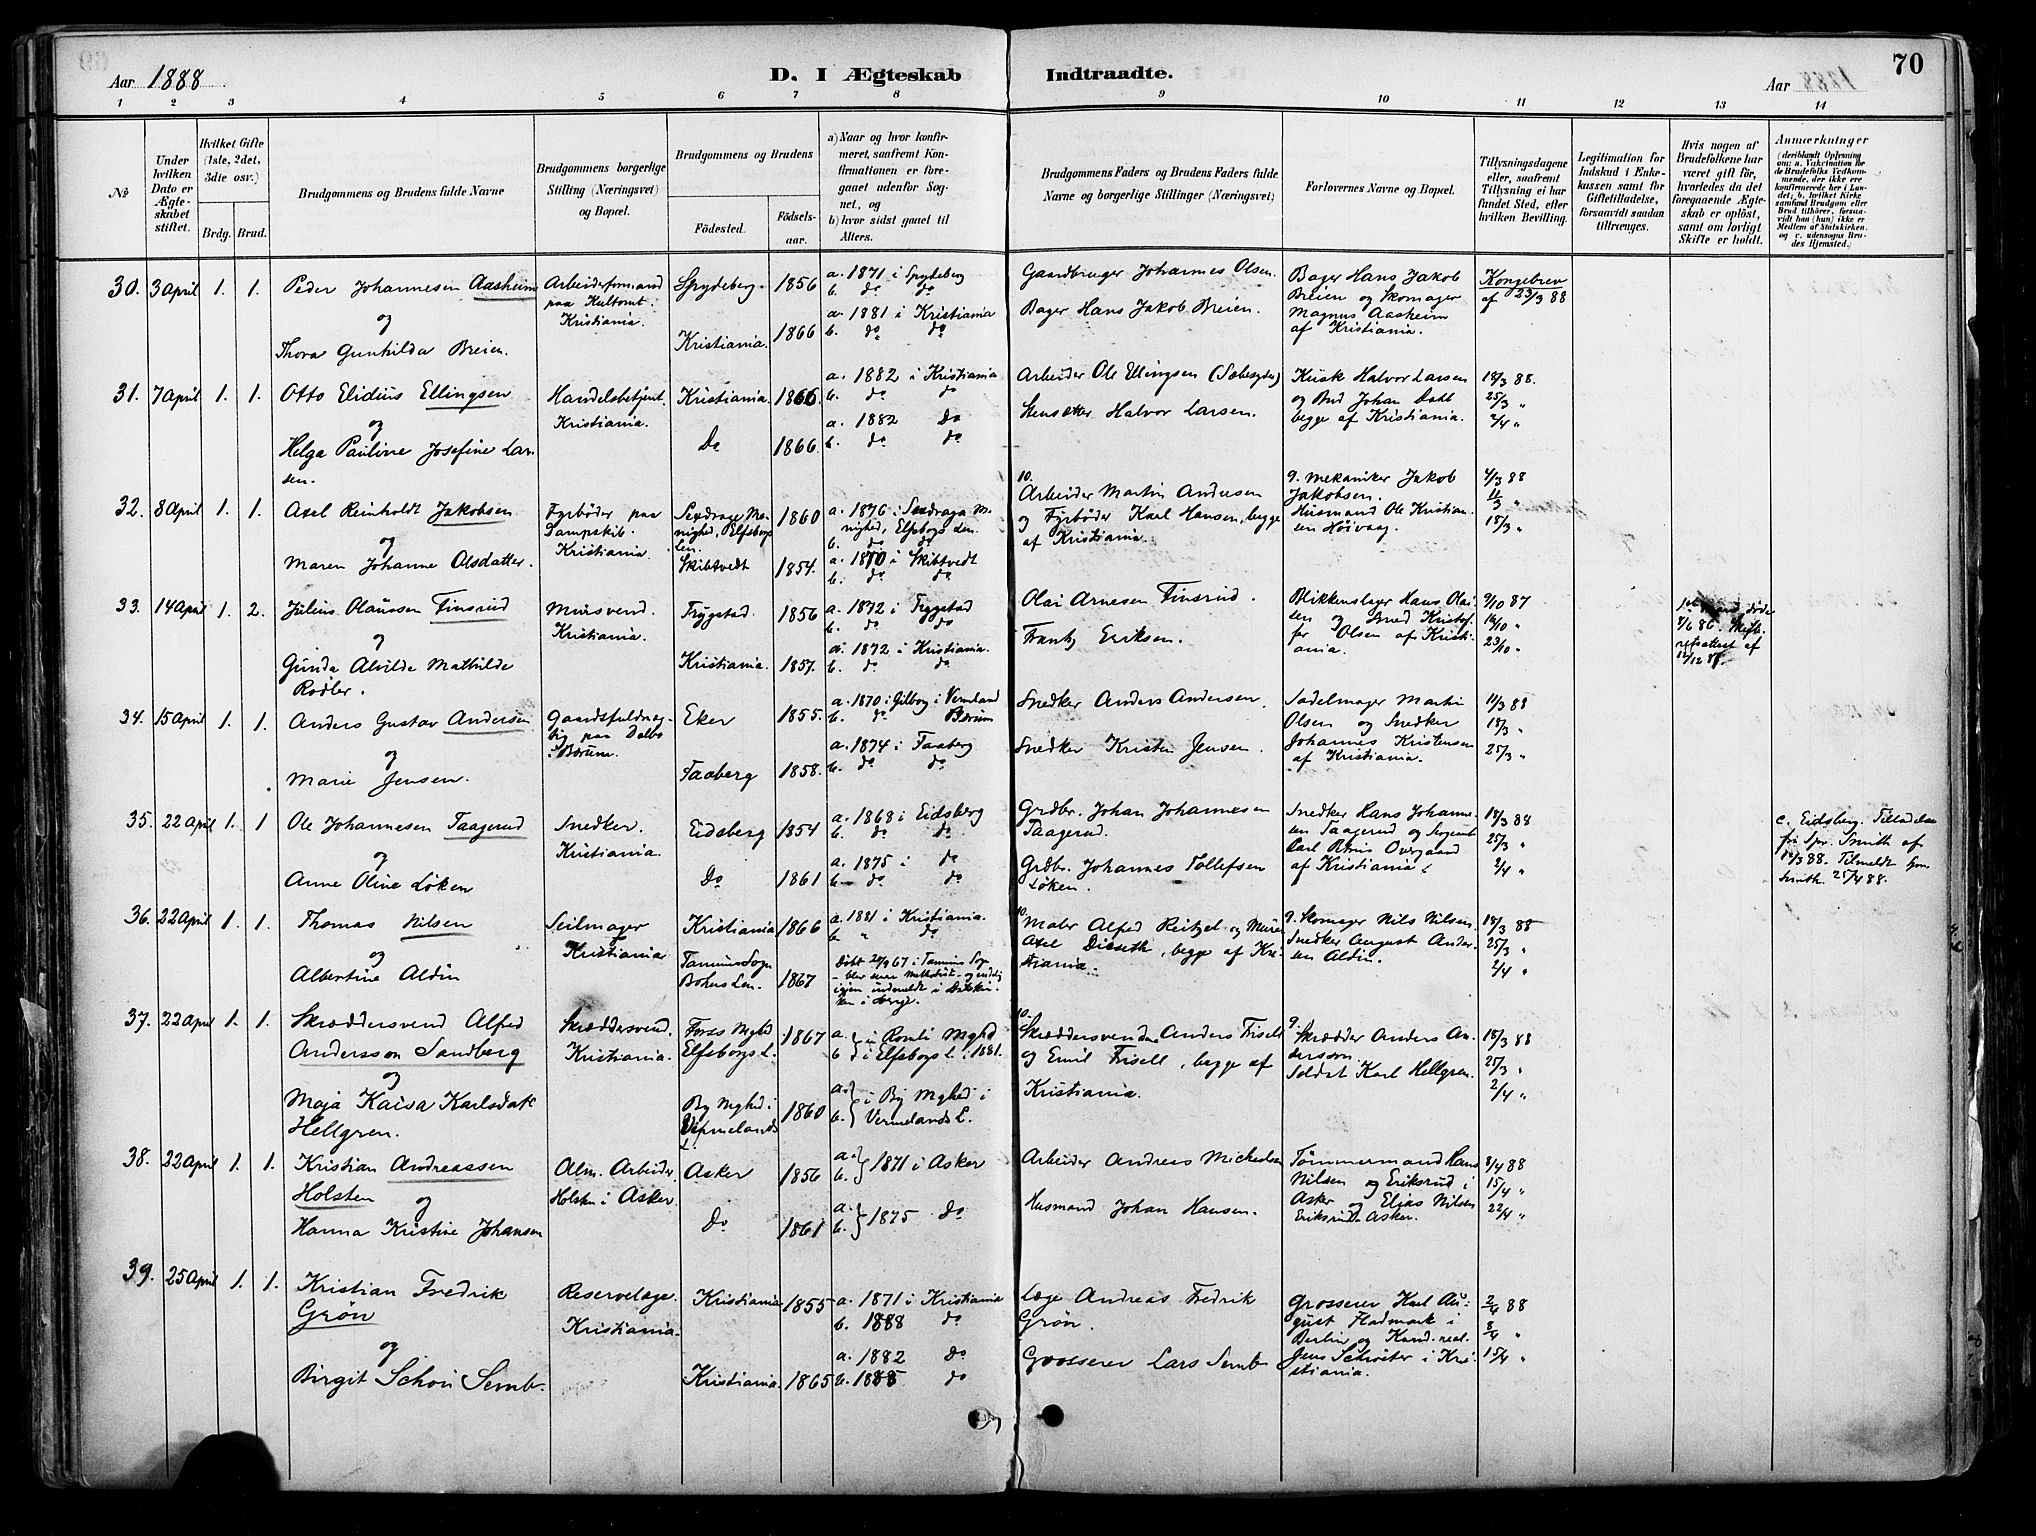 Aar 1888. D. I Ægteskab Indtraadte. Aar 1888 70
1 2 3 4 5 6 7 8 9 10 11 12 13 14
№
Under hvilken Dato er Ægteskabet stiftet.
Hvilket Gifte (1ste, 2det, 3die osv.)
Brdg. Brud.
Brudgommens og Brudens fulde Navne
Brudgommens borgerlige Stilling (Næringsvei) og Bopæl.
Brudgommens og Brudens
Fødested. Fødselsaar.
a) Naar og hvor konfirmeret, saafremt Konfirmationen er foregaaet udenfor Sognet, og
b) hvor sidst gaaet til Alters.
Brudgommens Faders og Brudens Faders fulde Navne og borgerlige Stillinger (Næringsvei)
Forlovernes Navne og Bopæl.
Tillysningsdagene eller, saafremt Tillysning ei har fundet Sted, efter hvilken Bevilling.
Legitimation for Indskud i Enkekassen samt for Giftetilladelse, forsaavidt saadan tiltrænges.
Hvis nogen af Brudefolkene har været gift før, hvorledes da det foregaaende Ægteskab er opløst, samt om lovligt Skifte er holdt.
Anmærkninger (deriblandt Oplysning om: a. Vakcination for de Brudefolks Vedkommende, der ikke ere konfirmerede her i Landet; b. hvilket Kirkesamfund Brudgom eller Brud tilhører, forsaavidt han (hun) ikke er Medlem af Statskirken, og c. udensogns Brudes Hjemsted.)
30. 3 April 1. 1. Peder Johannesen Aasheim
og
Thora Gunhilda Breien.
Arbeidsformand paa Kristiania.
Spydeberg 1856
Kristiania. 1866
a. 1871 i Spydeberg
b. do do
a. 1881 i Kristiania
b. do do
Gaardbruger Johannes Olsen.
Bager Hans Jakob Breien.
Bager Hans Jakob Breien og Skomager Magnus Aasheim af Kristiania.
Kongebrev af 23/3 88
31. 7 April 1. 1. Otto Elidius Ellingsen
og
Helga Pauline Josefine Larsen.
Handelsbetjent. Kristiania.
Kristiania. 1866.
Do 1866.
a. 1882 i Kristiania
b. do do
a. 1882 Do
b. do do
Arbeider Ole Ellingsen (Sæbesyder)
Stensætter Halvor Larsen.
Kusk Halvor Larsen og Bud Johan Dahl begge af Kristiania.
18/3 88.
25/3 "
2/4 "
32. 8 April 1. 1. Axel Reinholdt Jakobsen
og
Maren Johanne Olsdatter.
Fyrbøder paa Dampskib. Kristiania.
Sexdrage Menighed, Elfsborgs Len. 1860
Skibtvedt 1854.
a. 1876 i Sexdraga Menighed, Elfsborgs Len.
b. do do
a. 1870 i Skibtvedt
b. do do
10.
Arbeider Martin Andersen og Fyrbøder Karl Hansen, begge af Kristiania.
9. Mekaniker Jakob Jakobsen.
Husmand Ole Kristiansen
4/3 88
11/3 "
18/3 "
33. 14 April 1. 2. Julius Olaussen Finsrud
og
Gunda Alvilde Mathilde Rodler.
Mursvend. Kristiania.
Trygstad 1856
Kristiania. 1857.
a. 1872 i Trygstad
b. do do
a. 1872 i Kristiania.
b. do do
Olai Arnesen Finsrud.
Frantz Eriksen.
Blikkenslager Hans Olaisen og Smed Kristoffer Olsen af Kristiania.
9/10 87
16/10 "
23/10 "
34. 15 April 1. 1. Anders Gustav Andersen
og
Marie Jensen.
paa Dalbo i Bærum.
Eker 1855.
Faaberg 1858.
a. 1870 i Gilborg i Vermland
b. do Bærum
a. 1874 i Faaberg
b. do do
Snedker Anders Andersen.
Snedker Kristen Jensen.
Sadelmager Martin Olsen og Snedker Johannes Kristensen af Kristiania.
11/3 88
18/3 "
25/3 "
35. 22 April 1. 1 Ole Johannesen Taagerud
og
Anne Oline Løken
Snedker. Kristiania.
Eidsberg 1854
Do 1861
a. 1868 i Eidsberg
b. do do
a. 1875 i do
b. do do
Grdbr. Johan Johannesen Taagerud.
Grdbr. Johannes Tollefsen Løken.
Snedker Hans Johannesen Taagerud og Sergeant Carl Overgaard af Kristiania.
18/3 88
25/3 "
2/4 "
c. Eidsberg. Tilladelse fra Spr. Smith af 12/3 88. Tilmeldt Smith. 25/4 88.
36. 22 April 1. 1. Thomas Nilsen
og
Albertine Aldin
Seilmager Kristiania
Kristiania 1866
Tanums Sogn Bohus Len. 1867
a. 1881 i Kristiania.
b. " do
Døbt 21/9 67 i Tanums Sogn
10. Maler Alfred Reitzel og Murer Axel Diseth, begge af Kristiania.
9. Skomager Nils Nilsen.
Snedker August Andersen Aldin.
18/3 88
25/3 "
2/4 "
37. 22 April 1. 1. Skræddersvend Alfred Andersson Sandberg
og
Maja Kaisa Karlsdatr Hellgren.
Skræddersvend. Kristiania.
Fors Mghd Elfsborgs L. 1867
By Mghd i Vermelands L. 1860
a. b. i Mghd i Elfsborgs L. 1881.
a. b. i By Mghd i Vermelands L.
10.
Skræddersvendene Anders Frisell og Emil Frisell, begge af Kristiania.
9. Skrædder Anders Andersson.
Soldat Karl Hellgren.
18/3 88
25/3 "
2/4 "
38. 22 April 1. 1. Kristian Andreassen Holsten
og
Hanna Kristine Johansen
Alm. Arbeider. Holsten i Asker.
Asker 1856
Do 1861
a. b. 1871 i Asker
a. b. 1875 Do
Arbeider Andreas Michelsen
Husmand Johan Hansen.
Tømmermand Hans Nilsen Eriksrud i Asker og Elias Nilsen Eriksrud Asker.
8/4 88
15/4 "
22/4 "
39. 25 April 1. 1. Kristian Fredrik Grøn
og
Birgit Schou Semb.
Reservelæge. Kristiania.
Kristiania 1855
Kristiania. 1865
a. 1871 i Kristiania
b. 1888 do
a. 1882 Do
b. 1885 do
Læge Andreas Fredrik Grøn.
Grosserer Lars Semb
Grosserer Karl August Hadmark i Berlin og Kand. real. Jens Schrøter i Kristiania.
2/4 88
8/4 "
15/4 "